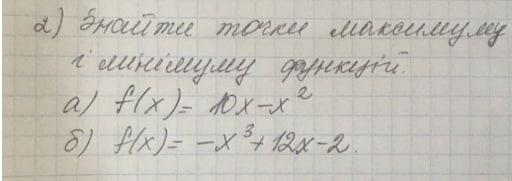 2) Знайти точки максимуму
і мінімуму функцій.
а) f(x)= 10x-x²
б) f(x)= -x³+12x-2.